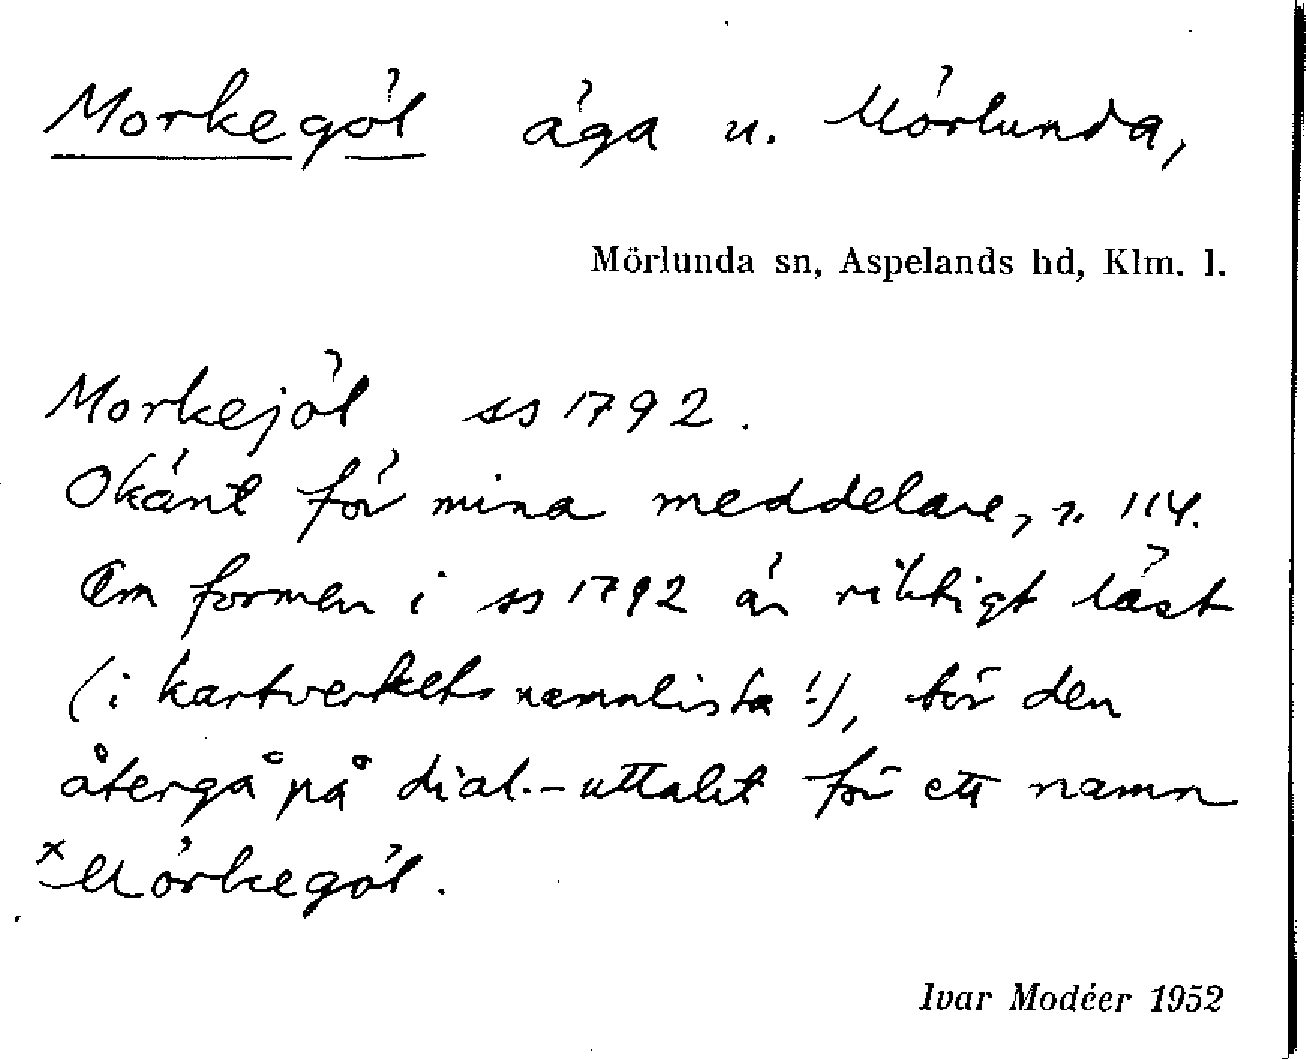 Morkegöl äga u. Mörlunda,
Mörlunda sn, Aspelands hd, Klm. l.
Morkejöl ss 1792.
Okänt för mina meddelare, n. 114.
Om formen i ss 1792 är riktigt läst
(i kartverkets namnlista!), bör den
återgå på dial.-uttalet för ett namn
*Mörkegöl.
Ivar Modéer 1952